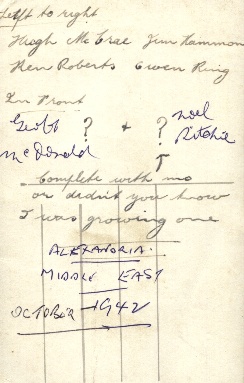 Left to right
Hugh McCrae Jim Hammon
Ken Roberts Owen Ring
In Front
Geoff ? + ? Noel
McDonald Ritchie
Complete with mo
or didnt you know
I was growing one
ALEXANDRIA.
MIDDLE EAST
OCTOBER 1942